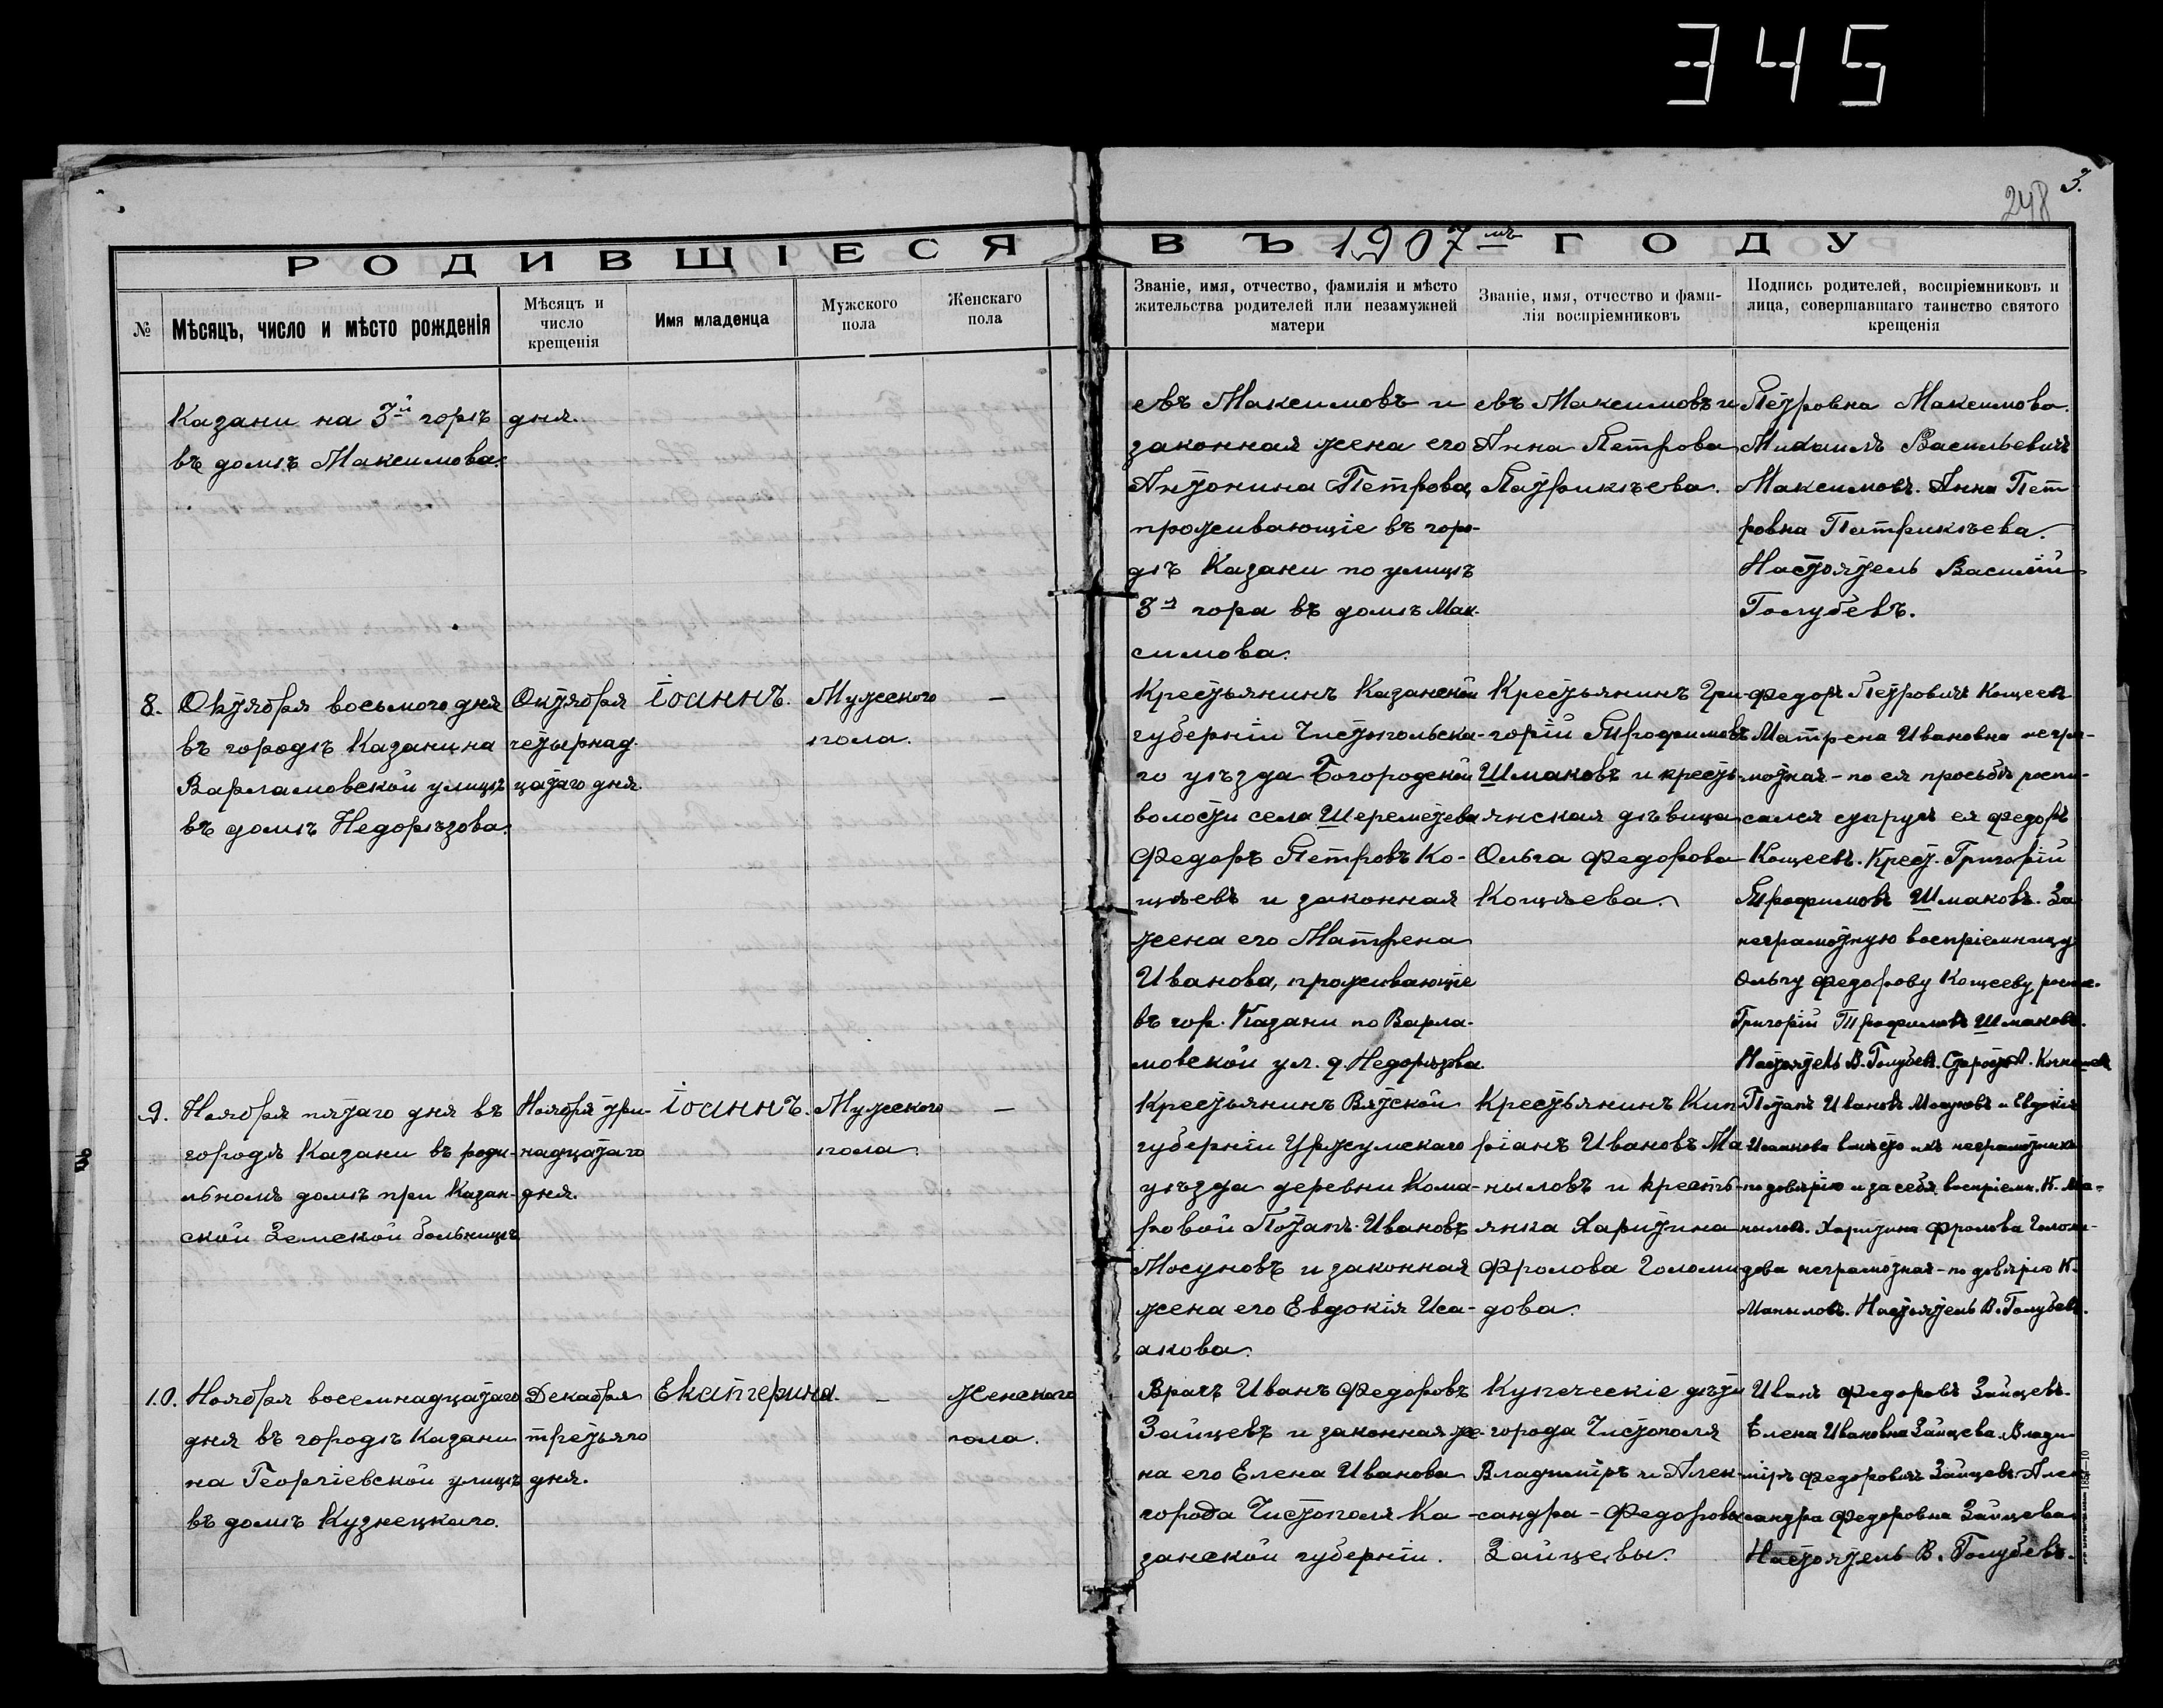 345
248
3.
РОДИВШІЕСЯ
ВЪ 1907мъ ГОДУ
№
Мѣсяцъ, число и мѣсто рожденія
Мѣсяцъ и
число
крещенія
Имя младенца
Мужского
пола
Женскаго
пола
Званіе, имя, отчество, фамилія и мѣсто
жительства родителей или незамужней
матери
Званіе, имя, отчество и фами-
лія воспріемниковъ
Подпись родителей, воспріемниковъ и
лица, совершавшаго таинство святого
крещенія
Казани на 3й горѣ
въ домѣ Максимова.
дня.
евъ Максимовъ и
законная жена его
Антонина Петрова,
проживающіе въ горо-
дѣ Казани по улицѣ
3я гора въ домѣ Мак-
симова.
евъ Максимовъ и
Анна Петрова
Патрикѣева.
Петровна Максимова.
Михаилъ Васильевичъ
Максимовъ. Анна Пет
ровна Патрикѣева.
Настоятель Василій
Голубевъ.
8.
Октября восьмого дня
въ городѣ Казани на
Варламовской улицѣ
въ домѣ Недорѣзова.
Октября
четырнад-
цатаго дня.
Іоаннъ.
Мужского
пола.
—
Крестьянинъ Казанской
губерніи Чистопольска-
го уѣзда Богородской
волости села Шереметева
Федоръ Петровъ Ко-
щѣевъ и законная
жена его Матрена
Иванова, проживающіе
въ гор. Казани по Варла-
мовской ул. д. Недорѣзова.
Крестьянинъ Гри-
горій Трофимовъ
Шмаковъ и кресть-
янская дѣвица
Ольга Федорова
Кощѣева.
Федоръ Петровичъ Кощеевъ.
Матрена Ивановна негра-
мотная – по ея просьбѣ роспи-
сался супругъ ея Федоръ
Кощеевъ. Крест. Григорій
Трофимовъ Шмаковъ. За
неграмотную воспріемницу
Ольгу Федорову Кощееву роспис.
Григорій Трофимовъ Шмаковъ.
Настоятель В. Голубевъ. Старо
9.
Ноября пятаго дня въ
городѣ Казани въ роди-
льномъ домѣ при Казан-
ской Земской больницѣ
Ноября три-
надцатаго
дня.
Іоаннъ.
Мужского
пола.
—
Крестьянинъ Вятской
губерніи Уржумскаго
уѣзда деревни Кома-
ровой Потапъ Ивановъ
Мосуновъ и законная
жена его Евдокія Иса-
акова.
Крестьянинъ Кип
ріанъ Ивановъ Ма
ныловъ и кресть-
янка Харитина
Фролова Голоми
дова.
Потапъ Ивановъ Мосуновъ и Евдокія
Исаакова вмѣсто ихъ неграмотныхъ
по довѣрію и за себя воспріемн. К. Ма-
ныловъ. Харитина Фролова Голоми-
дова неграмотная – по довѣрію К.
Маныловъ. Настоятель В. Голубевъ.
10.
Ноября восемнадцатаго
дня въ городѣ Казани
на Георгіевской улицѣ
въ домѣ Кузнецкаго.
Декабря
третьяго
дня.
Екатерина.
—
Женскаго
пола.
Врачъ Иванъ Федоровъ
Зайцевъ и законная же-
на его Елена Иванова
города Чистополя Ка-
занской губерніи.
Купеческіе дѣти
города Чистополя
Владиміръ и Алек-
сандра – Федоровы
Зайцевы.
Иванъ Федоровъ Зайцевъ.
Елена Ивановна Зайцева. Влади-
міръ Федоровичъ Зайцевъ. Алек
сандра Федоровна Зайцева
Настоятель В. Голубевъ.